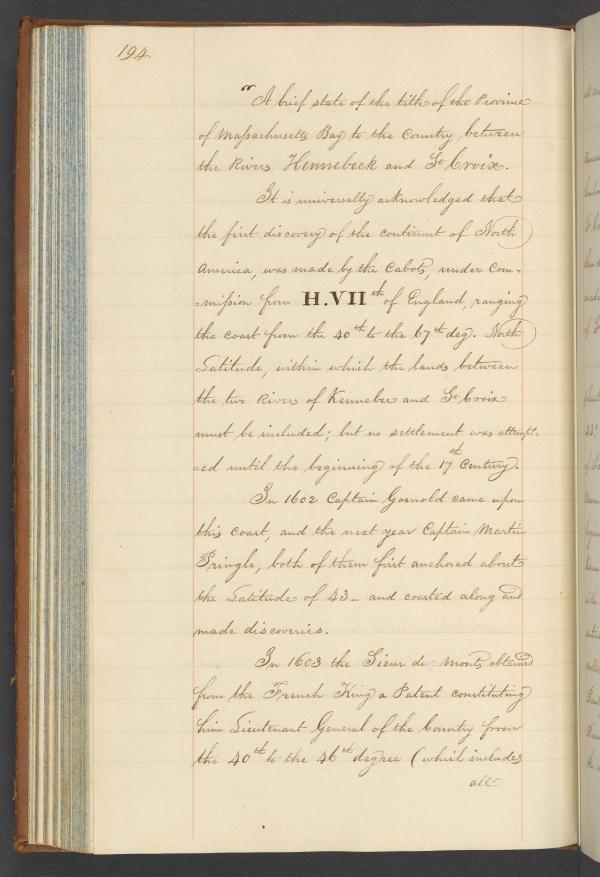 194.
"A brief state of the title of the Province
of Massachusetts Bay to the Country between
the Rivers Kennebeck and St Croix.
It is universally acknowledged that
the first discovery of the continent of North
America, was made by the Cabots, under Com=
=mission from H.VIIth of England, ranging
the coast from the 40th to the 67th deg. North
Latitude, within which the lands between
the two Rivers of Kennebec and St Croix
must be included; but no settlement was attempt-
=ed until the beginning of the 17th Century.
In 1602 Captain Gosnold came upon
this coast, and the next year Captain Martin
Pringle, both of them first anchored about
the Latitude of 43_ and coasted along and
made discoveries.
In 1603 the Sieur de Monts, obtained
from the French King a Patent constituting
him Lieutenant General of the Country from
the 40th to the 46th degree (which includes
all